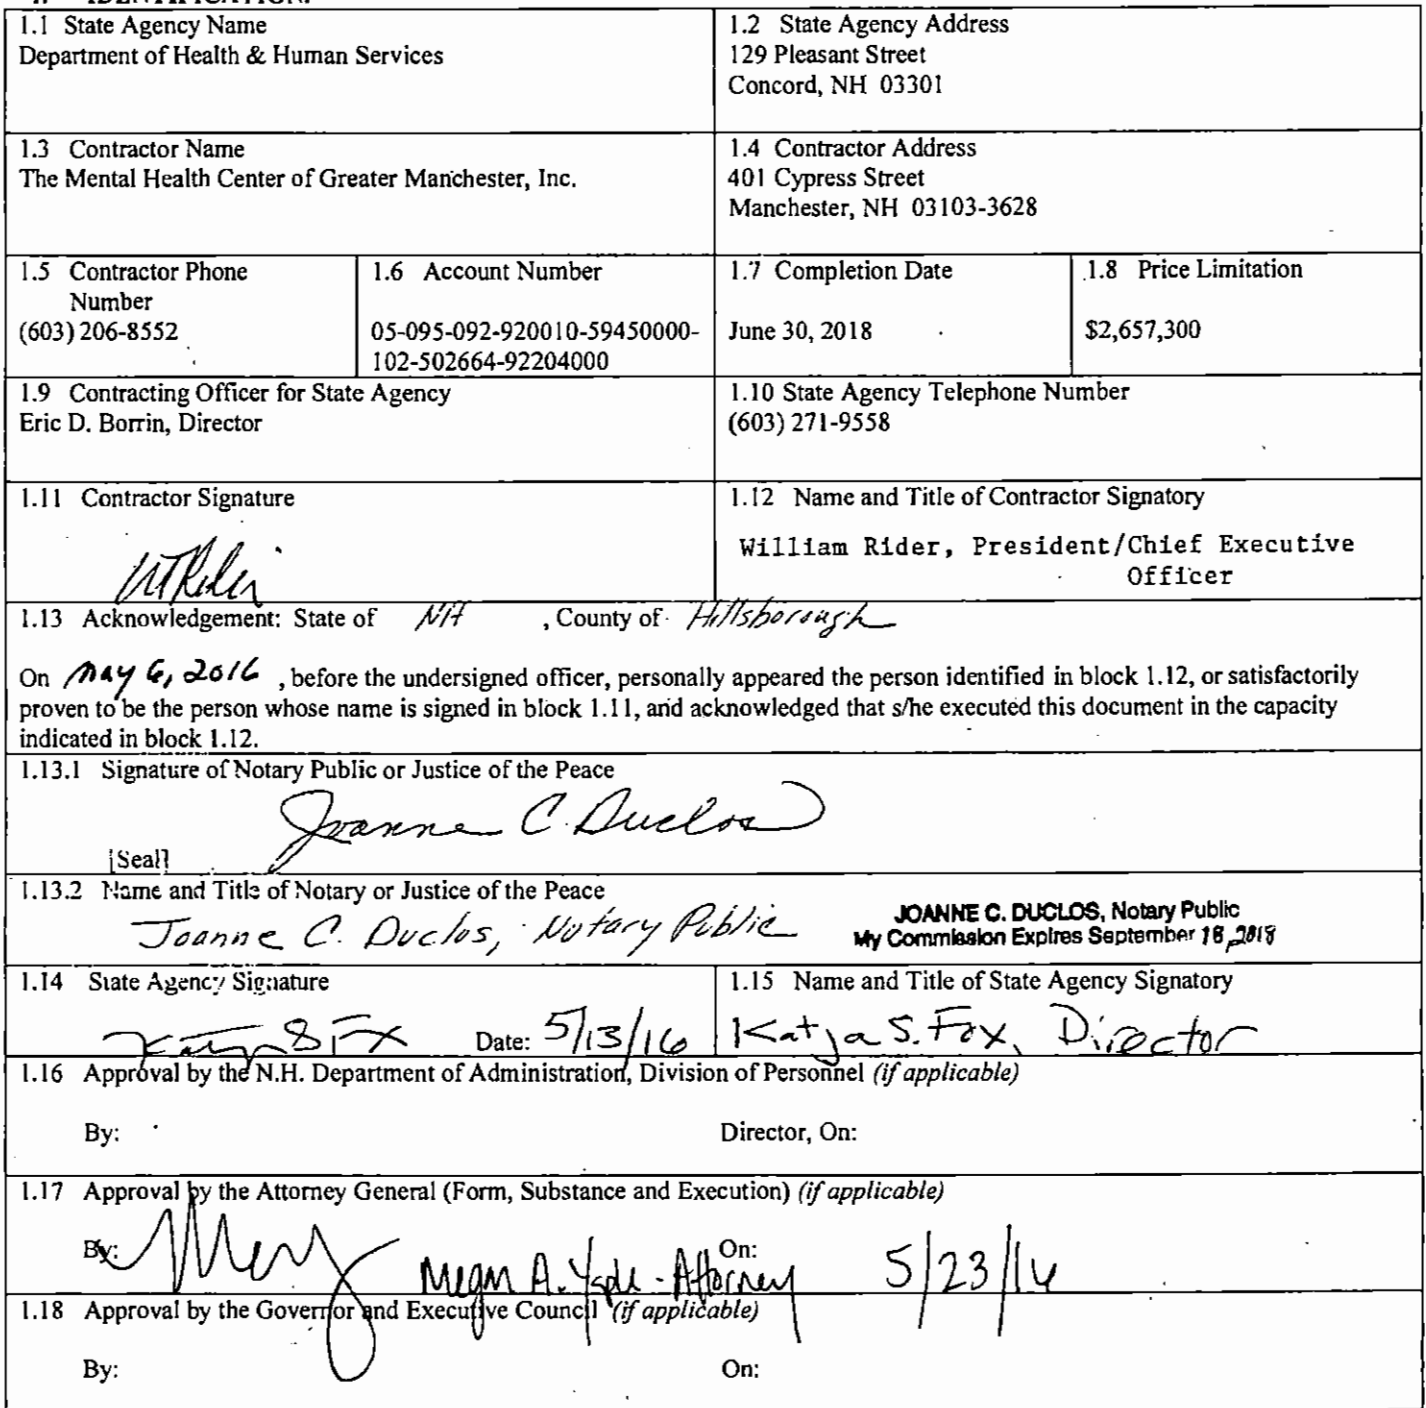 1. IDENTIFICATION.
1.1 State Agency Name
Department of Health & Human Services
1.2 State Agency Address
129 Pleasant Street
Concord, NH 03301
1.3 Contractor Name
The Mental Health Center of Greater Manchester, Inc.
1.4 Contractor Address
401 Cypress Street
Manchester, NH 03103-3628
1.5 Contractor Phone
Number
(603) 206-8552
1.6 Account Number
05-095-092-920010-59450000-
102-502664-92204000
1.7 Completion Date
June 30, 2018
1.8 Price Limitation
$2,657,300
1.9 Contracting Officer for State Agency
Eric D. Borrin, Director
1.10 State Agency Telephone Number
(603) 271-9558
1.11 Contractor Signature
1.12 Name and Title of Contractor Signatory
William Rider, President/Chief Executive
Officer
1.13 Acknowledgement: State of NH , County of Hillsborough
On May 6, 2016 , before the undersigned officer, personally appeared the person identified in block 1.12, or satisfactorily
proven to be the person whose name is signed in block 1.11, and acknowledged that s/he executed this document in the capacity
indicated in block 1.12.
1.13.1 Signature of Notary Public or Justice of the Peace
Joanne C. Duclos
[Seal]
1.13.2 Name and Title of Notary or Justice of the Peace
Joanne C. Duclos, Notary Public
JOANNE C. DUCLOS, Notary Public
My Commission Expires September 18, 2018
1.14 State Agency Signature
Date: 5/13/16
1.15 Name and Title of State Agency Signatory
Katja S. Fox, Director
1.16 Approval by the N.H. Department of Administration, Division of Personnel (if applicable)
By: Director, On:
1.17 Approval by the Attorney General (Form, Substance and Execution) (if applicable)
By: Megan A. - Attorney On: 5/23/16
1.18 Approval by the Governor and Executive Council (if applicable)
By: On: